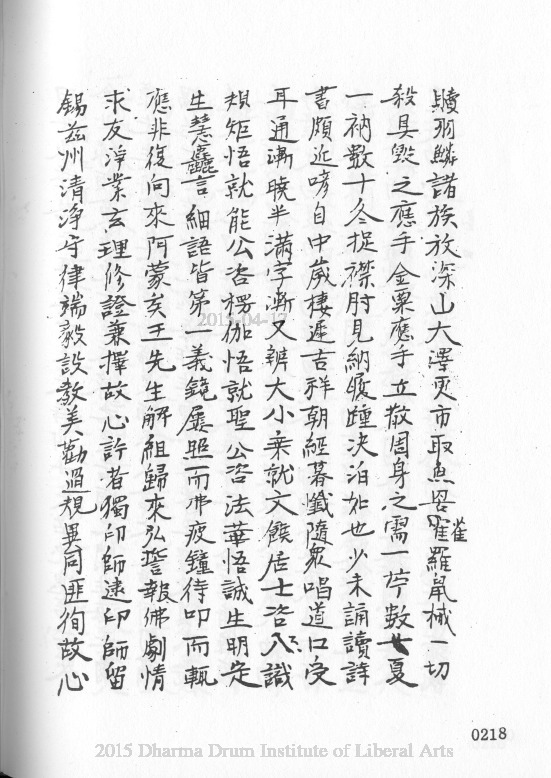 贖羽鱗諸族放深山大澤更市取魚罟雀羅鼠械一切
殺具毀之應手金粟應手立散周身之需一苧數七夏
一衲數十冬捉襟肘見納履踵决泊如也少未誦讀詩
書頗近嗲自中歲棲遲吉祥朝經暮懺隨衆唱道口受
耳通漸曉半滿字漸又辨大小乘就文餙居士咨八識
規矩悟就能公咨楞伽悟就聖公咨法華悟誠生明定
生慧麤言細語皆第一義鏡屢照而弗疲鐘待叩而輒
應非復向來阿蒙矣王先生解組歸來弘誓報佛劇情
求友淨業玄理修證兼擇故心許者獨印師逮印師留
錫茲州清淨守律端毅設教美勸過規異同匪徇故心
0218
2015-04-17
2015 Dharma Drum Institute of Liberal Arts